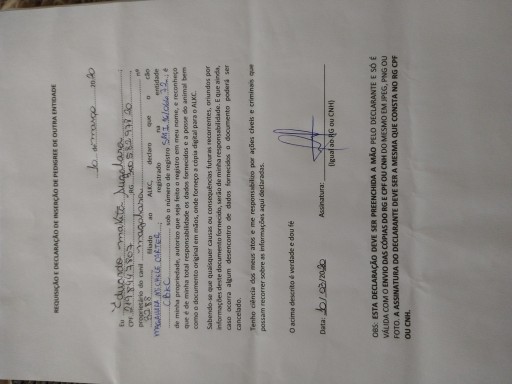 REQUISIÇÃO E DECLARAÇÃO DE INSERÇÃO DE PEDIGREE DE OUTRA ENTIDADE
10 março 2020
Eu Eduardo
CPF RG
proprietário do canil nº
filiado ao ALKC, declaro que o cão
na entidade
CBKC sob o número de registro é
de minha propriedade, autorizo que seja feito o registro em meu nome, e reconheço
que é de minha total responsabilidade os dados fornecidos e a posse do animal bem
como o documento original em mãos, onde forneço a cópia digital para o ALKC.
Sabendo-se que qualquer causas ou consequências futuras recorrentes, oriundos por
informações deste documento fornecido, serão de minha responsabilidade. E que ainda,
caso ocorra algum desencontro de dados fornecidos o documento poderá ser
cancelado.
Tenho ciência dos meus atos e me responsabilizo por ações cíveis e criminais que
possam recorrer sobre as informações aqui declaradas.
O acima descrito é verdade e dou fé
Data: 10/03/2020 Assinatura:
(Igual ao RG ou CNH)
OBS: ESTA DECLARAÇÃO DEVE SER PREENCHIDA A MÃO PELO DECLARANTE E SÓ É
VÁLIDA COM O ENVIO DAS CÓPIAS DO RG E CPF OU CNH DO MESMO EM JPEG, PNG OU
FOTO. A ASSINATURA DO DECLARANTE DEVE SER A MESMA QUE CONSTA NO RG CPF
OU CNH.